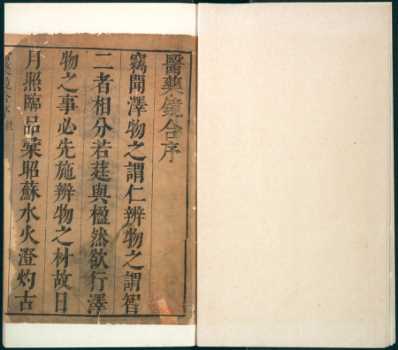 醫藥鏡合序
竊聞澤物之謂仁辨物之謂智
二者相分若莛與楹然欲行澤
物之事必先施辨物之材故日
月照臨品彙昭蘇水火澄灼古